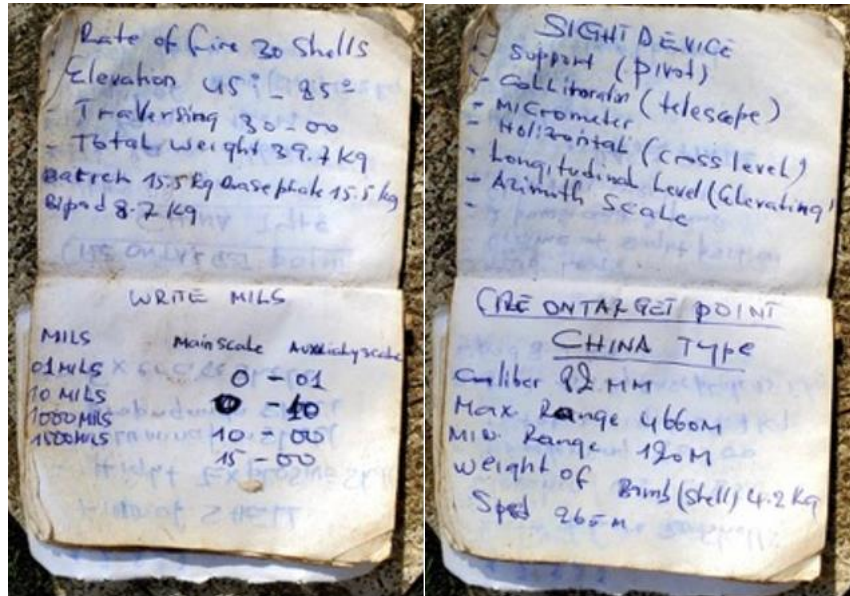 Rate of fire 30 Shells
Elevation 45° - 85°
Traversing 30-00
- Total weight 39.7 Kg
15.5 Kg Basephate 15.5 kg
Bipod 8.7 Kg
WRITE MILS
MILS Mainscale
01 MILS 0 - 01
10 MILS 0 - 10
1000 MILS 10 - 00
1500 MILS 15 - 00
SIGHT DEVICE
- Support (pivot)
- Collitorator (telescope)
- MICrometer
- Holizontal (Cross level)
- Longitudinal Level (Elevating)
- Azimuth Scale
FIRE ONTARGET POINT
CHINA Type
Caliber 82 MM
Max. Range 4660M
Min. Range 120M
Weight of Bomb (Shell) 4.2 Kg
265 m